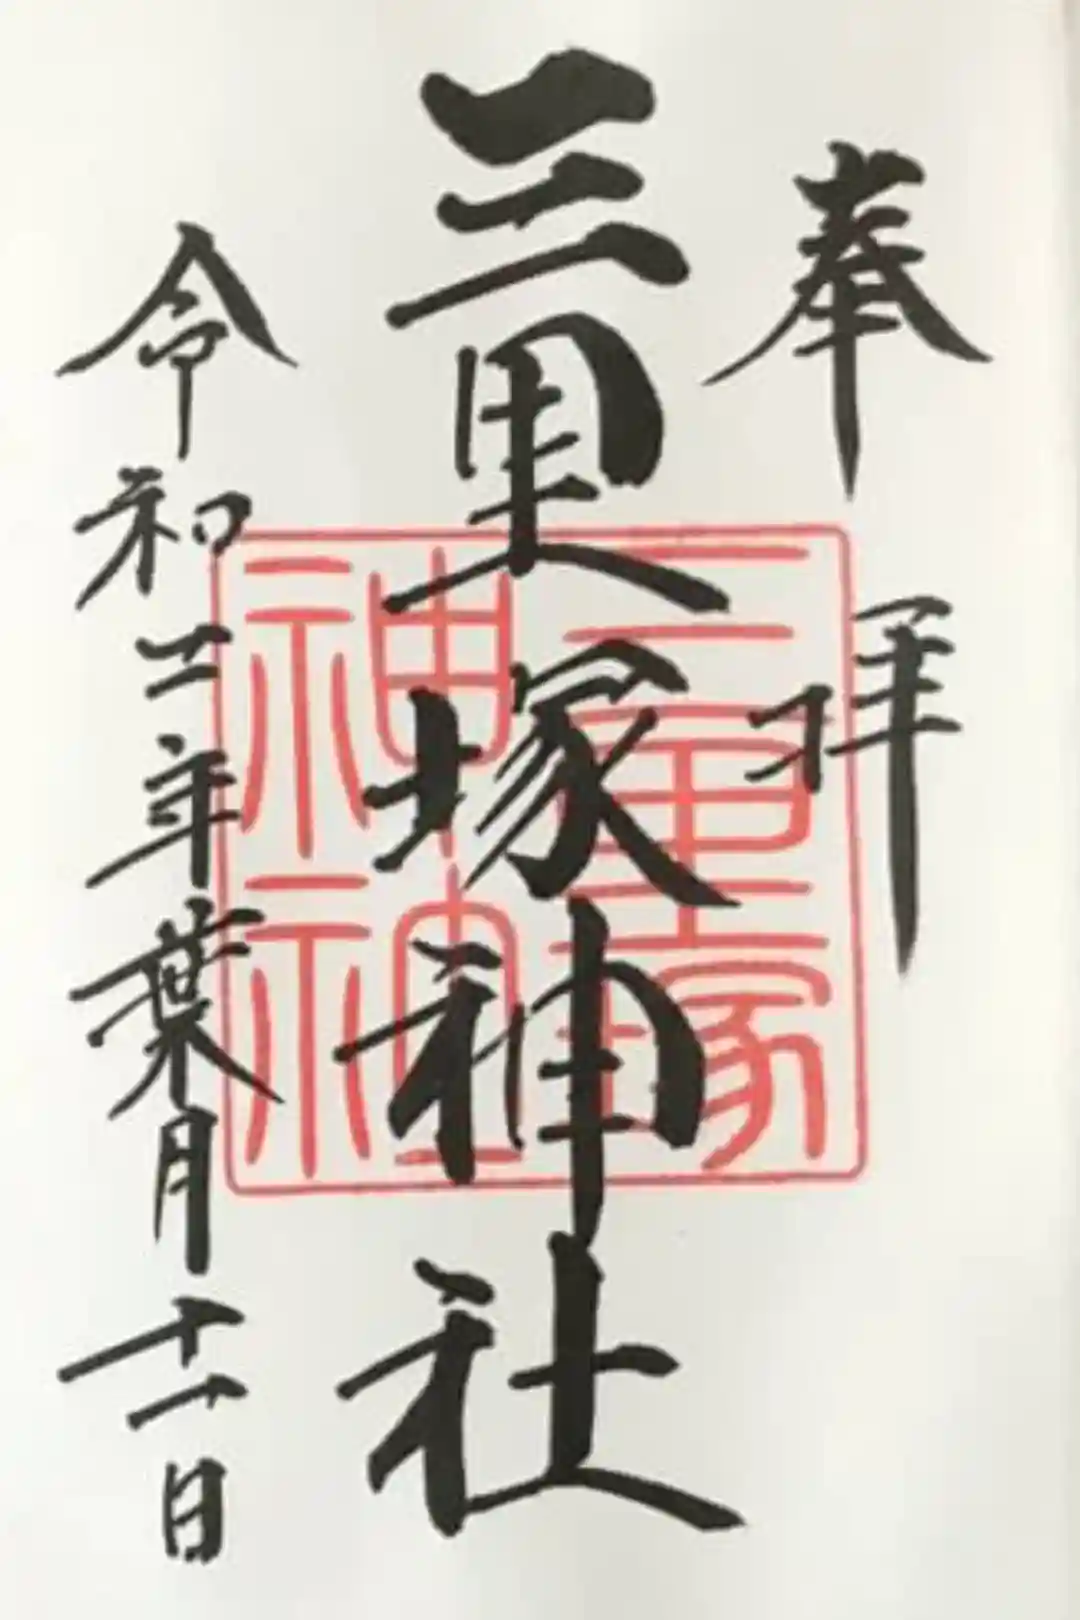 奉拝
三里塚神社
令和二年葉月十一日
三里塚
神社